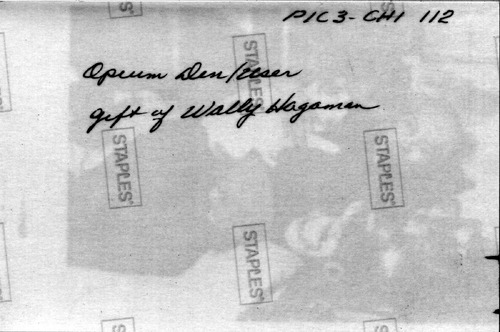 PIC3-CHI 112
Opium Den/User
gift of Wally Hagaman
STAPLES
STAPLES
STAPLES
STAPLES